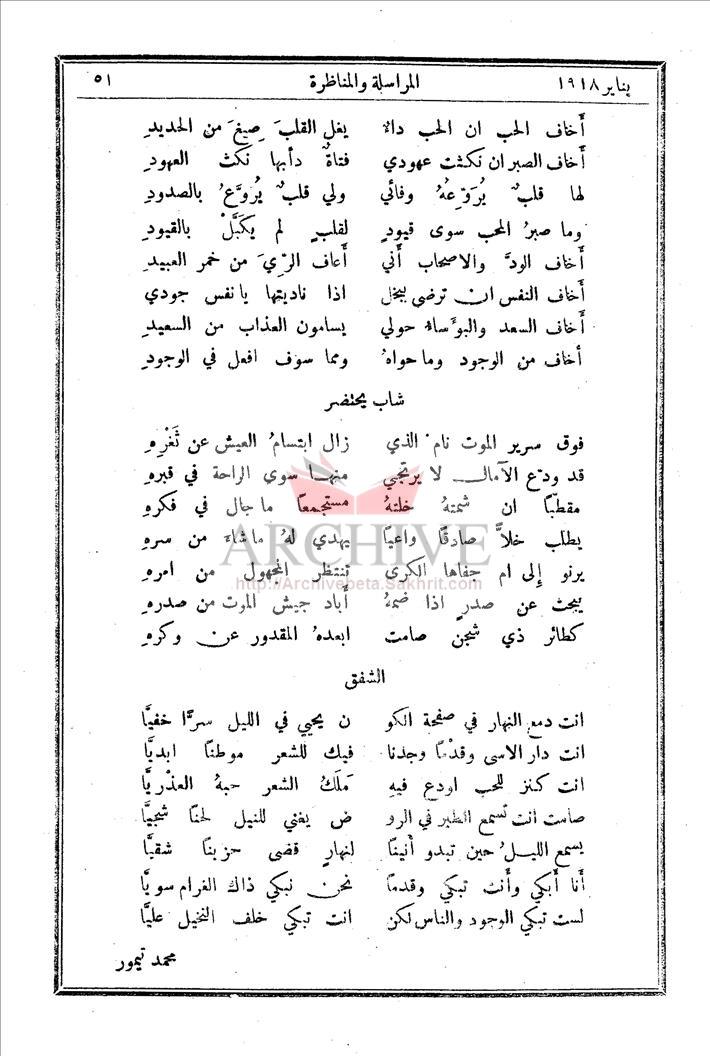 يناير ١٩١٨ المراسلة والمناظرة ٥١
أخاف الحب ان الحب داءٌ يغل القلبَ صِيغَ من الحديدِ
أخاف الصبر ان نكثت عهودي فتاةٌ دأبها نكث العهودِ
لها قلبٌ يُرَوّعهُ وفائي ولي قلبٌ يُروَّعُ بالصدودِ
وما صبرُ المحب سوى قيودٍ لقلبٍ لم يكبَّلْ بالقيودِ
أخاف الودَّ والاصحاب أني أعاف الرّيَ من خمر العبيدِ
أخاف النفس ان ترضى ببخل اذا ناديتها يا نفس جودي
أخاف السعد والبؤساء حولي يسامون العذاب من السعيدِ
أخاف من الوجود وما حواهُ ومما سوف افعل في الوجودِ
شاب يحتضر
فوق سرير الموت نام الذي زال ابتسامُ العيش عن ثَغْرِهِ
قد ودّع الآمال لا يرتجي منها سوى الراحة في قبرهِ
مقطّبًا ان شمتهُ خلتهُ مستجمعًا ما جال في فكرهِ
يطلب خلاًّ صادقًا واعيًا يهدي لهُ ما شاء من سرهِ
يرنو إلى ام جفاها الكرى تنتظر المجهول من امرهِ
يبحث عن صدرٍ اذا ضمهُ أباد جيش الموت من صدرهِ
كطائر ذي شجن صامت ابعدهُ المقدور عن وكرهِ
ARCHIVE
http://Archivebeta.Sakhrit.com
الشفق
انت دمع النهار في صفحة الكو ن يحيي في الليل سرًّا خفيًّا
انت دار الاسى وقدْمًا وجدنا فيك للشعر موطنًا ابديًّا
انت كنز للحب اودع فيهِ مَلَكُ الشعر حبهُ العذْريَّا
صامت انت تسمع الطير في الرو ض يغني لليل لحنًا شجيًّا
يسمع الليلُ حين تبدو أنينًا لنهارٍ قضى حزينًا شقيًّا
أنا أبكي وأنت تبكي وقدمًا نحن نبكي ذاك الغرام سويًّا
لست تبكي الوجود والناس لكن انت تبكي خلف النخيل عليًّا
محمد تيمور